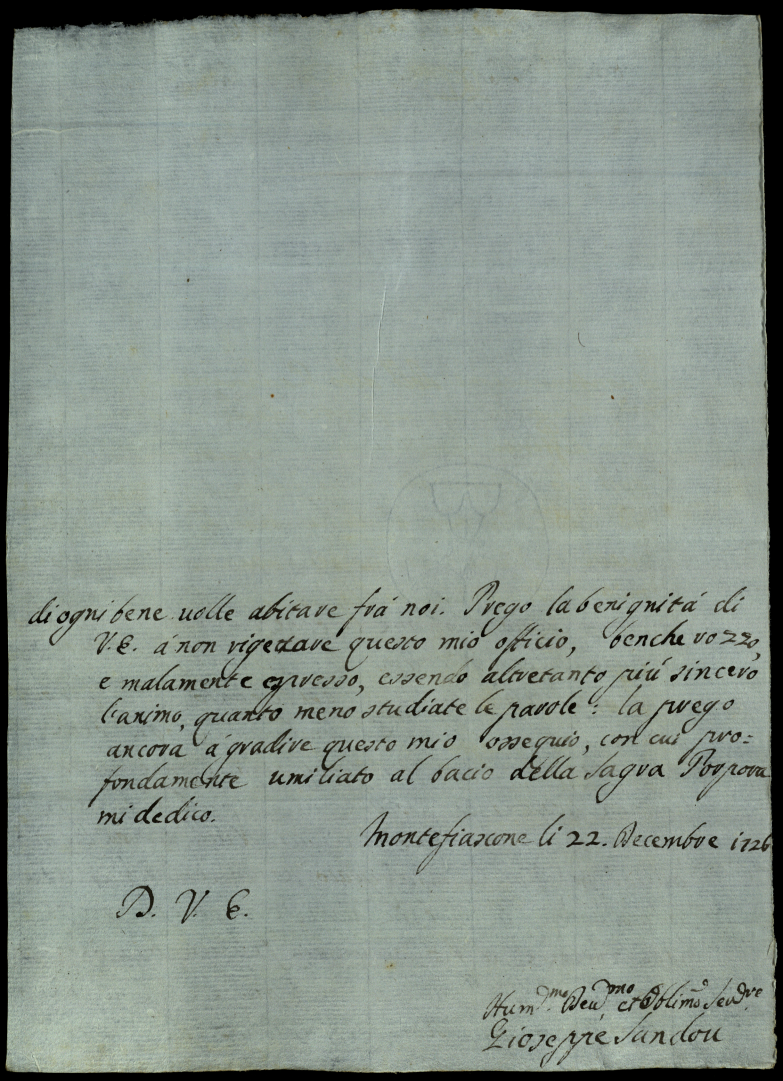 di ogni bene uolle abitare frá noi. Prego la benignitá di
V. E. á non rigettare questo mio officio, benche rozzo,
e malamente espresso, essendo altretanto piú sincero
l'animo, quanto meno studiate le parole: la prego
ancora á gradire questo mio ossequio, con cui pro=
fondamente umiliato al bacio della Sagra Porpora
mi dedico.
Montefiascone li 22. Decembre 1726
D. V. E.
Hum.mo Deu.mo et Oblimõ Seu.re
Gioseppe Sandou